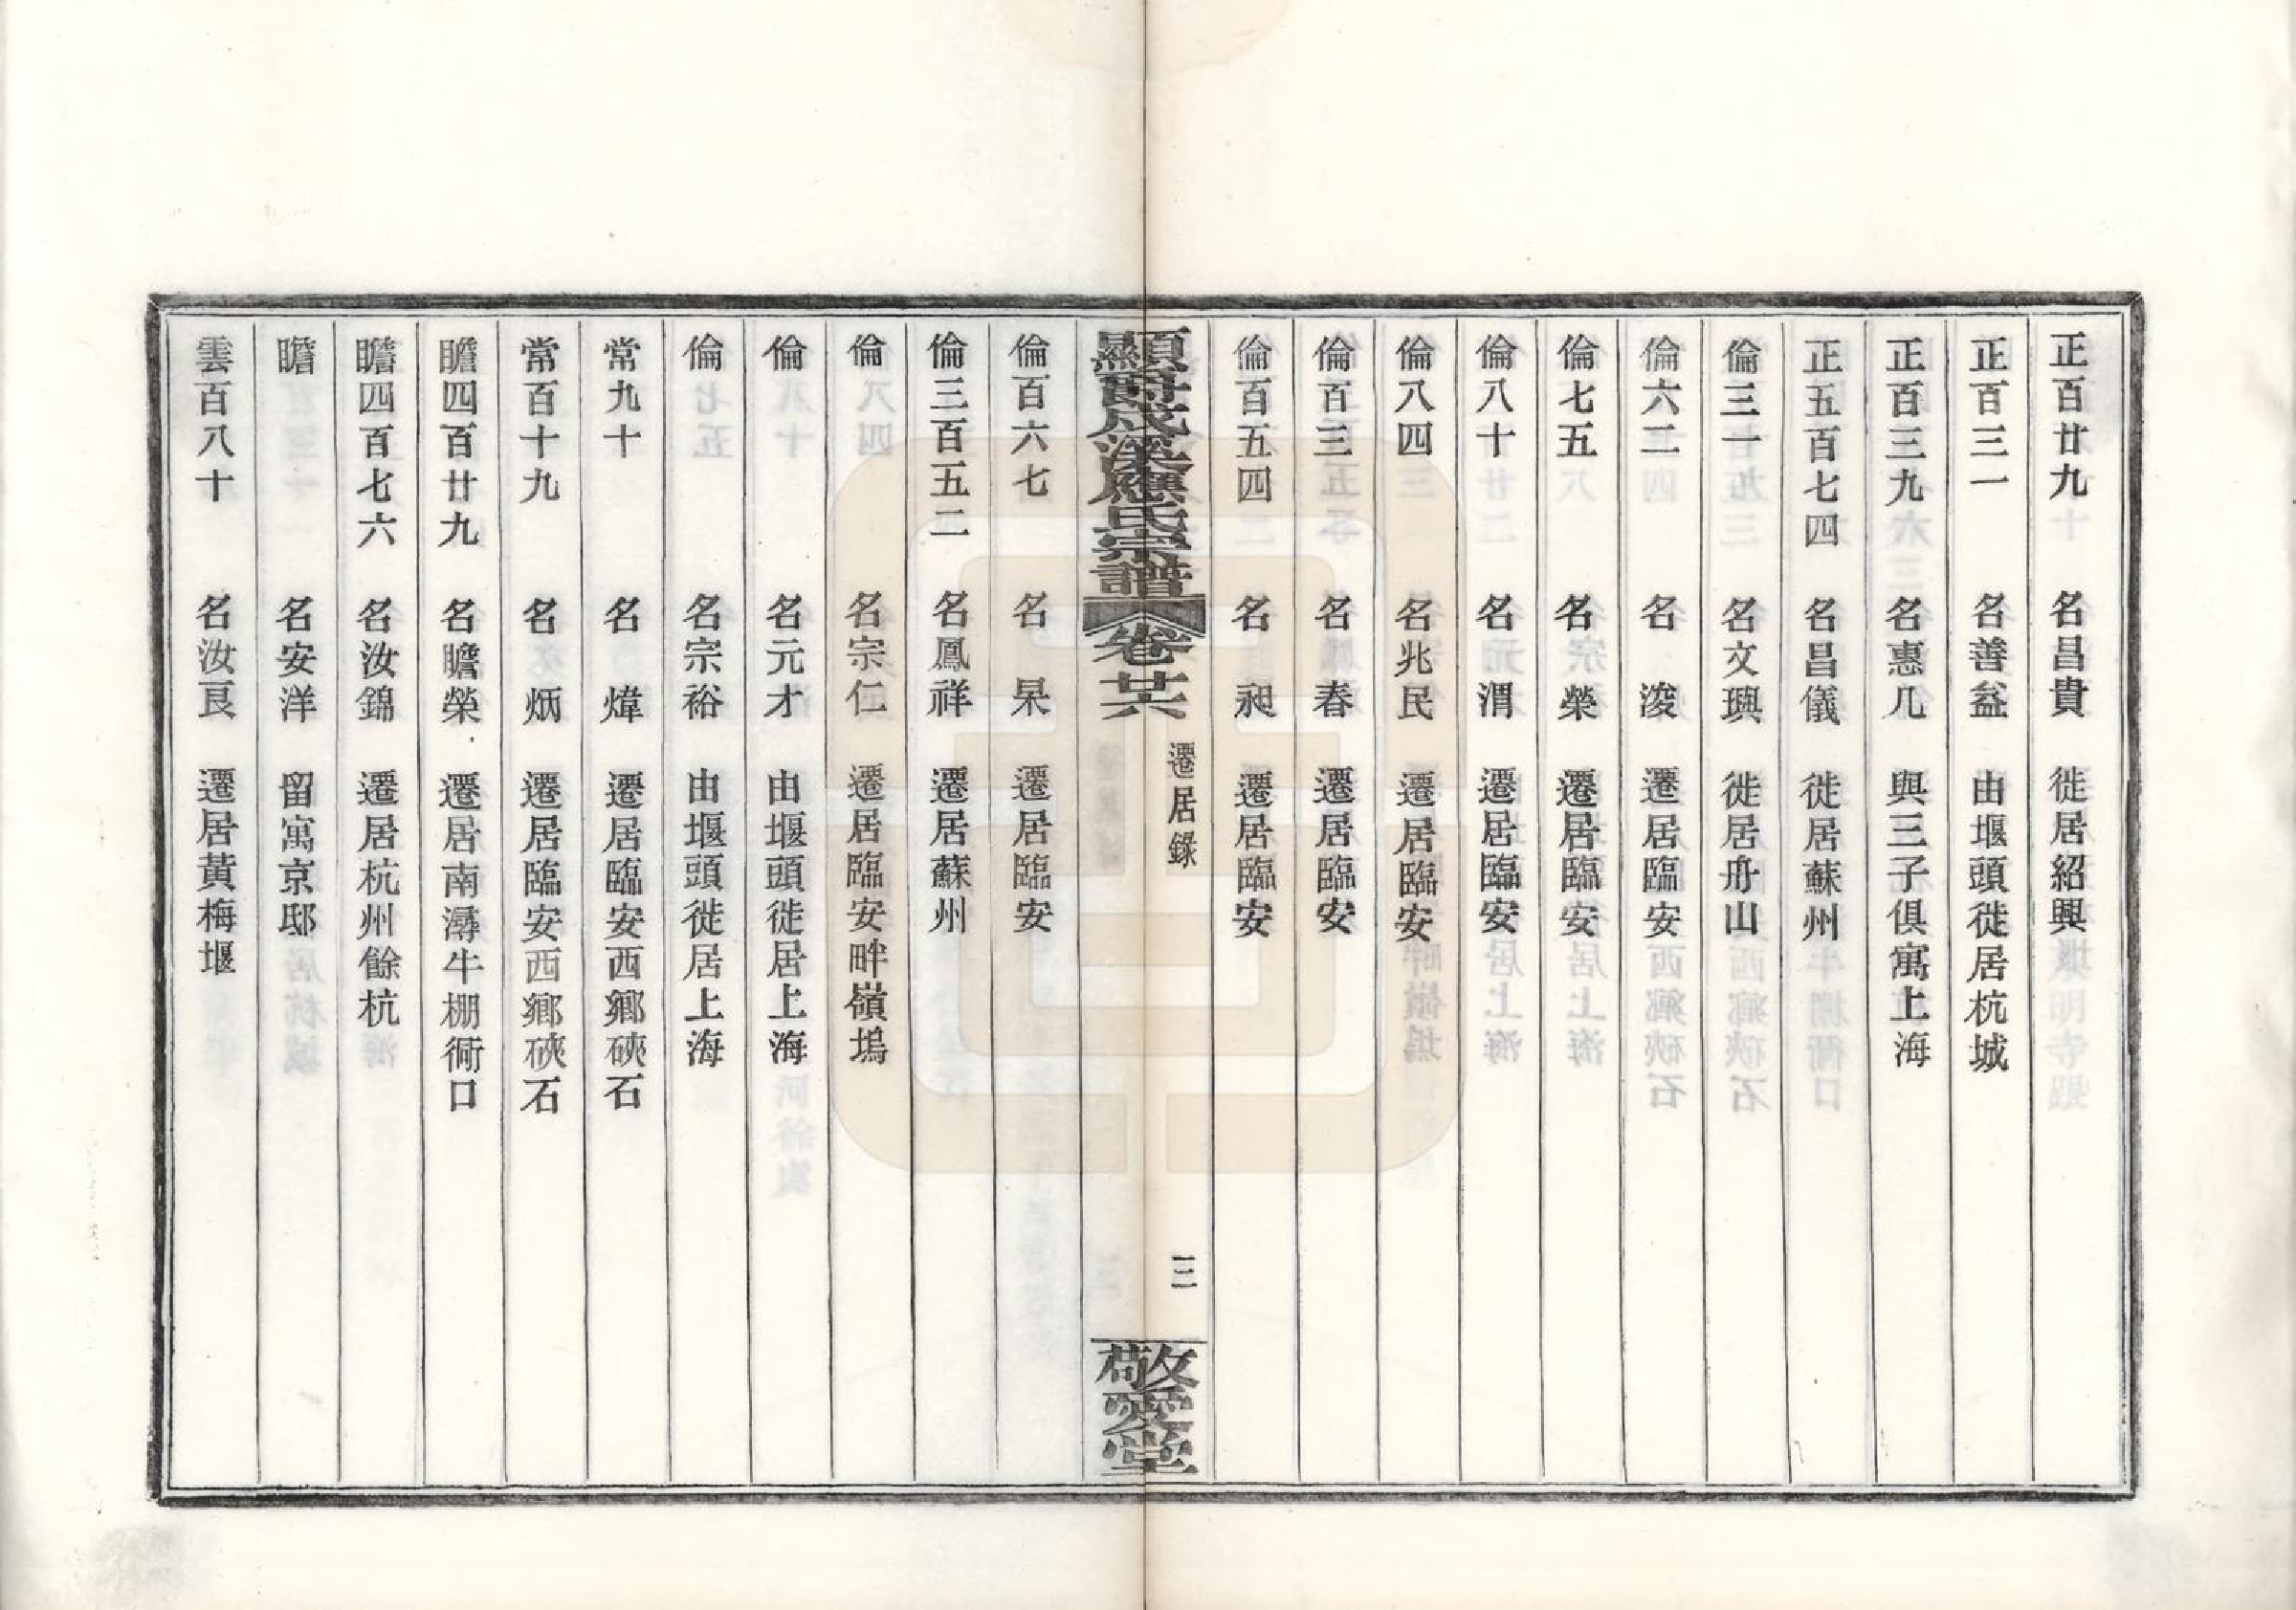 正百廿九 名昌貴 徙居紹興
正百三一 名善益 由堰頭徙居杭城
正百三九 名惠几 與三子俱寓上海
正五百七四 名昌儀 徙居蘇州
倫三一 名文興 徙居舟山
倫六二 名浚 遷居臨安
倫七五 名榮 遷居臨安
倫八十 名渭 遷居臨安
倫八四 名兆民 遷居臨安
倫百三 名春 遷居臨安
倫百五四 名昶 遷居臨安
顯爵成溪應氏宗譜 卷廿六 遷居錄 三 敬愛堂
倫百六七 名杲 遷居臨安
倫三百五二 名鳳祥 遷居蘇州
倫 名宗仁 遷居臨安畔嶺塢
倫 名元才 由堰頭徙居上海
倫 名宗裕 由堰頭徙居上海
常九十 名煒 遷居臨安西鄉硤石
常百十九 名炳 遷居臨安西鄉硤石
瞻四百廿九 名瞻榮 遷居南潯牛棚衖口
瞻四百七六 名汝錦 遷居杭州餘杭
瞻 名安洋 留寓京邸
雲百八十 名汝良 遷居黃梅堰